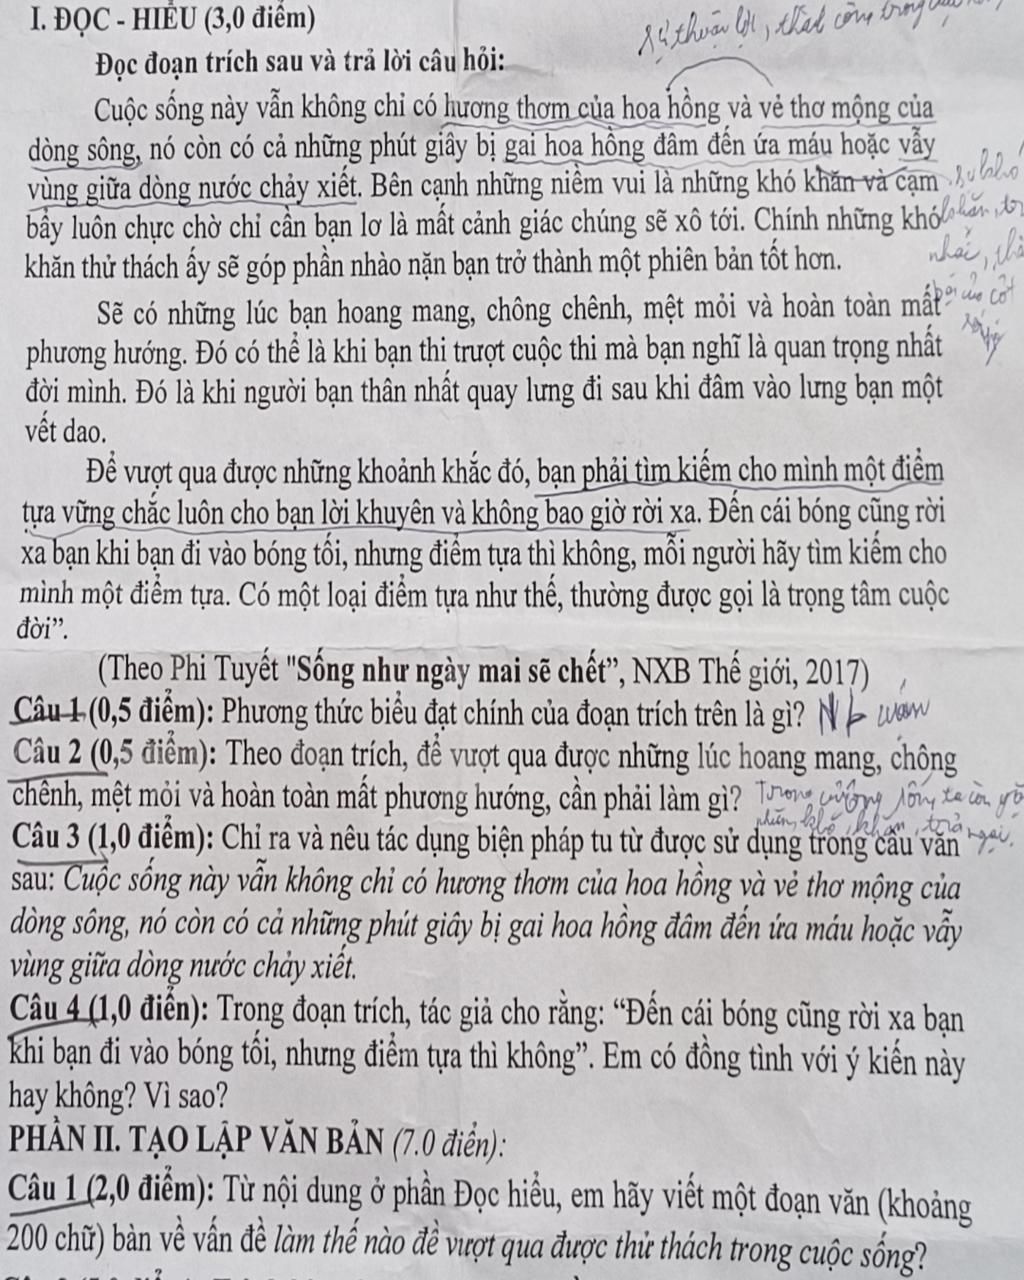 I. ĐỌC - HIỂU (3,0 điểm)
sự thuận lợi, thành công trong
Đọc đoạn trích sau và trả lời câu hỏi:
Cuộc sống này vẫn không chỉ có hương thơm của hoa hồng và vẻ thơ mộng của
dòng sông, nó còn có cả những phút giây bị gai hoa hồng đâm đến ứa máu hoặc vẫy
vùng giữa dòng nước chảy xiết. Bên cạnh những niềm vui là những khó khăn và cạm
bẫy luôn chực chờ chỉ cần bạn lơ là mất cảnh giác chúng sẽ xô tới. Chính những khó
khăn thử thách ấy sẽ góp phần nhào nặn bạn trở thành một phiên bản tốt hơn.
Sẽ có những lúc bạn hoang mang, chông chênh, mệt mỏi và hoàn toàn mất
phương hướng. Đó có thể là khi bạn thi trượt cuộc thi mà bạn nghĩ là quan trọng nhất
đời mình. Đó là khi người bạn thân nhất quay lưng đi sau khi đâm vào lưng bạn một
vết dao.
Để vượt qua được những khoảnh khắc đó, bạn phải tìm kiếm cho mình một điểm
tựa vững chắc luôn cho bạn lời khuyên và không bao giờ rời xa. Đến cái bóng cũng rời
xa bạn khi bạn đi vào bóng tối, nhưng điểm tựa thì không, mỗi người hãy tìm kiếm cho
mình một điểm tựa. Có một loại điểm tựa như thế, thường được gọi là trọng tâm cuộc
đời”.
(Theo Phi Tuyết "Sống như ngày mai sẽ chết”, NXB Thế giới, 2017)
Câu 1 (0,5 điểm): Phương thức biểu đạt chính của đoạn trích trên là gì?
Câu 2 (0,5 điểm): Theo đoạn trích, để vượt qua được những lúc hoang mang, chông
chênh, mệt mỏi và hoàn toàn mất phương hướng, cần phải làm gì?
Câu 3 (1,0 điểm): Chỉ ra và nêu tác dụng biện pháp tu từ được sử dụng trong câu văn
sau: Cuộc sống này vẫn không chỉ có hương thơm của hoa hồng và vẻ thơ mộng của
dòng sông, nó còn có cả những phút giây bị gai hoa hồng đâm đến ứa máu hoặc vẫy
vùng giữa dòng nước chảy xiết.
Câu 4 (1,0 điển): Trong đoạn trích, tác giả cho rằng: “Đến cái bóng cũng rời xa bạn
khi bạn đi vào bóng tối, nhưng điểm tựa thì không”. Em có đồng tình với ý kiến này
hay không? Vì sao?
PHẦN II. TẠO LẬP VĂN BẢN (7.0 điển):
Câu 1 (2,0 điểm): Từ nội dung ở phần Đọc hiểu, em hãy viết một đoạn văn (khoảng
200 chữ) bàn về vấn đề làm thế nào để vượt qua được thử thách trong cuộc sống?